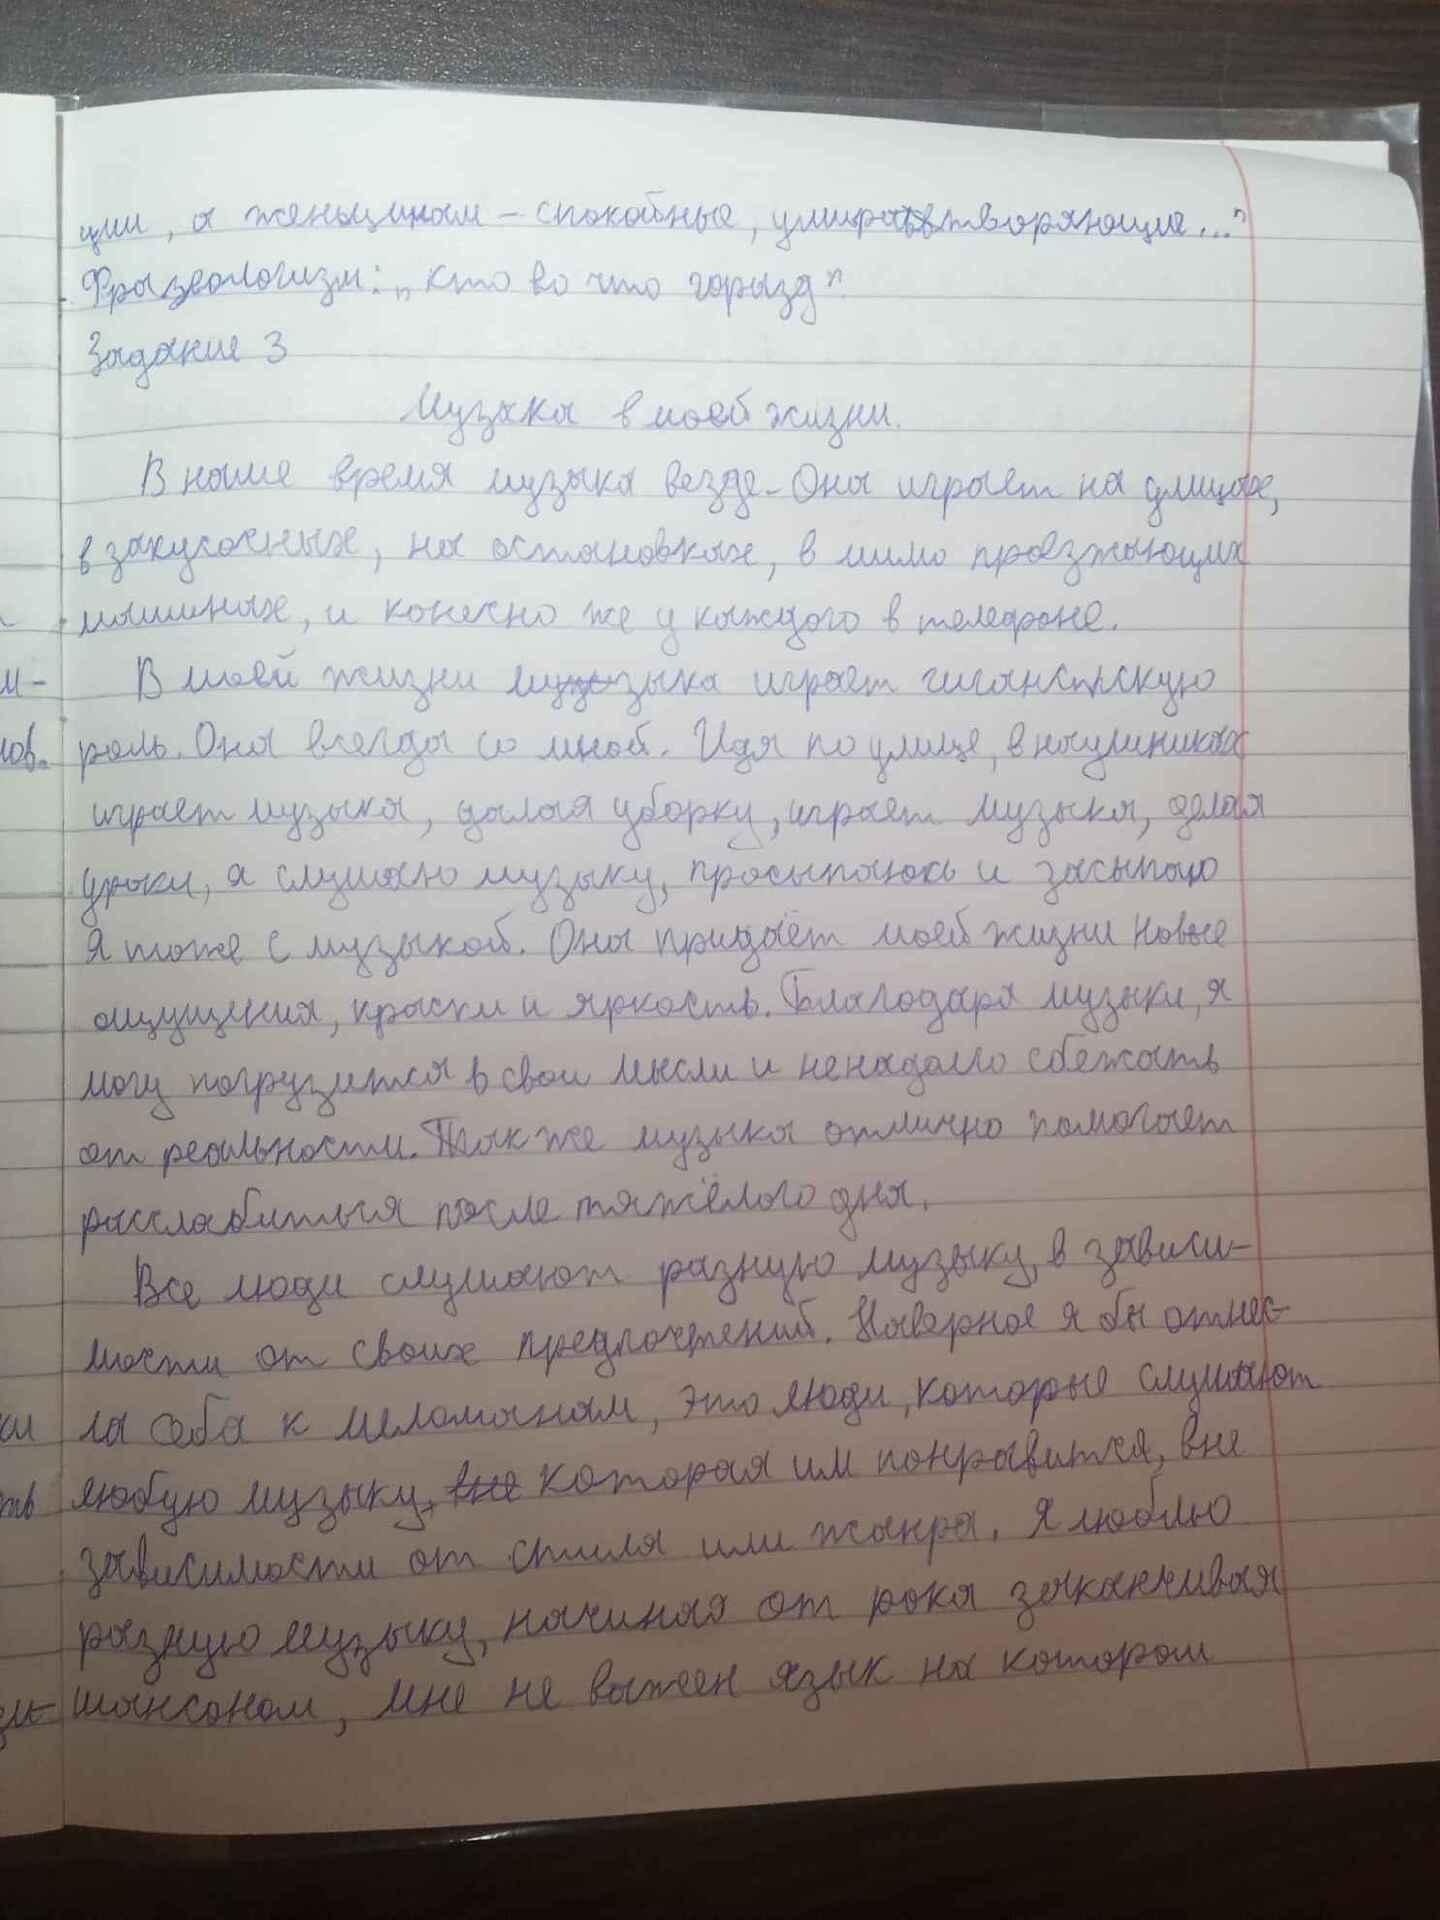 ции, а женщинам – спокойные, умиротворяющие..."
Фразеологизм: „кто во что горазд".
Задание 3
Музыка в моей жизни.
В наше время музыка везде. Она играет на улицах,
в закусочных, на остановках, в мимо проезжающих
машинах, и конечно же у каждого в телефоне.
м- В моей жизни музыка играет гигантскую
лов. роль. Она всегда со мной. Идя по улице, в наушниках
играет музыка, делая уборку, играет музыка, делая
уроки, я слушаю музыку, просыпаюсь и засыпаю
я тоже с музыкой. Она придаёт моей жизни новые
ощущения, краски и яркость. Благодаря музыки, я
могу погрузится в свои мысли и ненадолго сбежать
от реальности. Так же музыка отлично помогает
расслабиться после тяжёлого дня.
Все люди слушают разную музыку, в зависи-
мости от своих предпочтений. Наверное я бы отнес-
ла себя к меломанам, это люди, которые слушают
любую музыку, вне которая им понравится, вне
зависимости от стиля или жанра. Я люблю
разную музыку, начиная от рока заканчивая
шансоном, мне не важен язык на котором